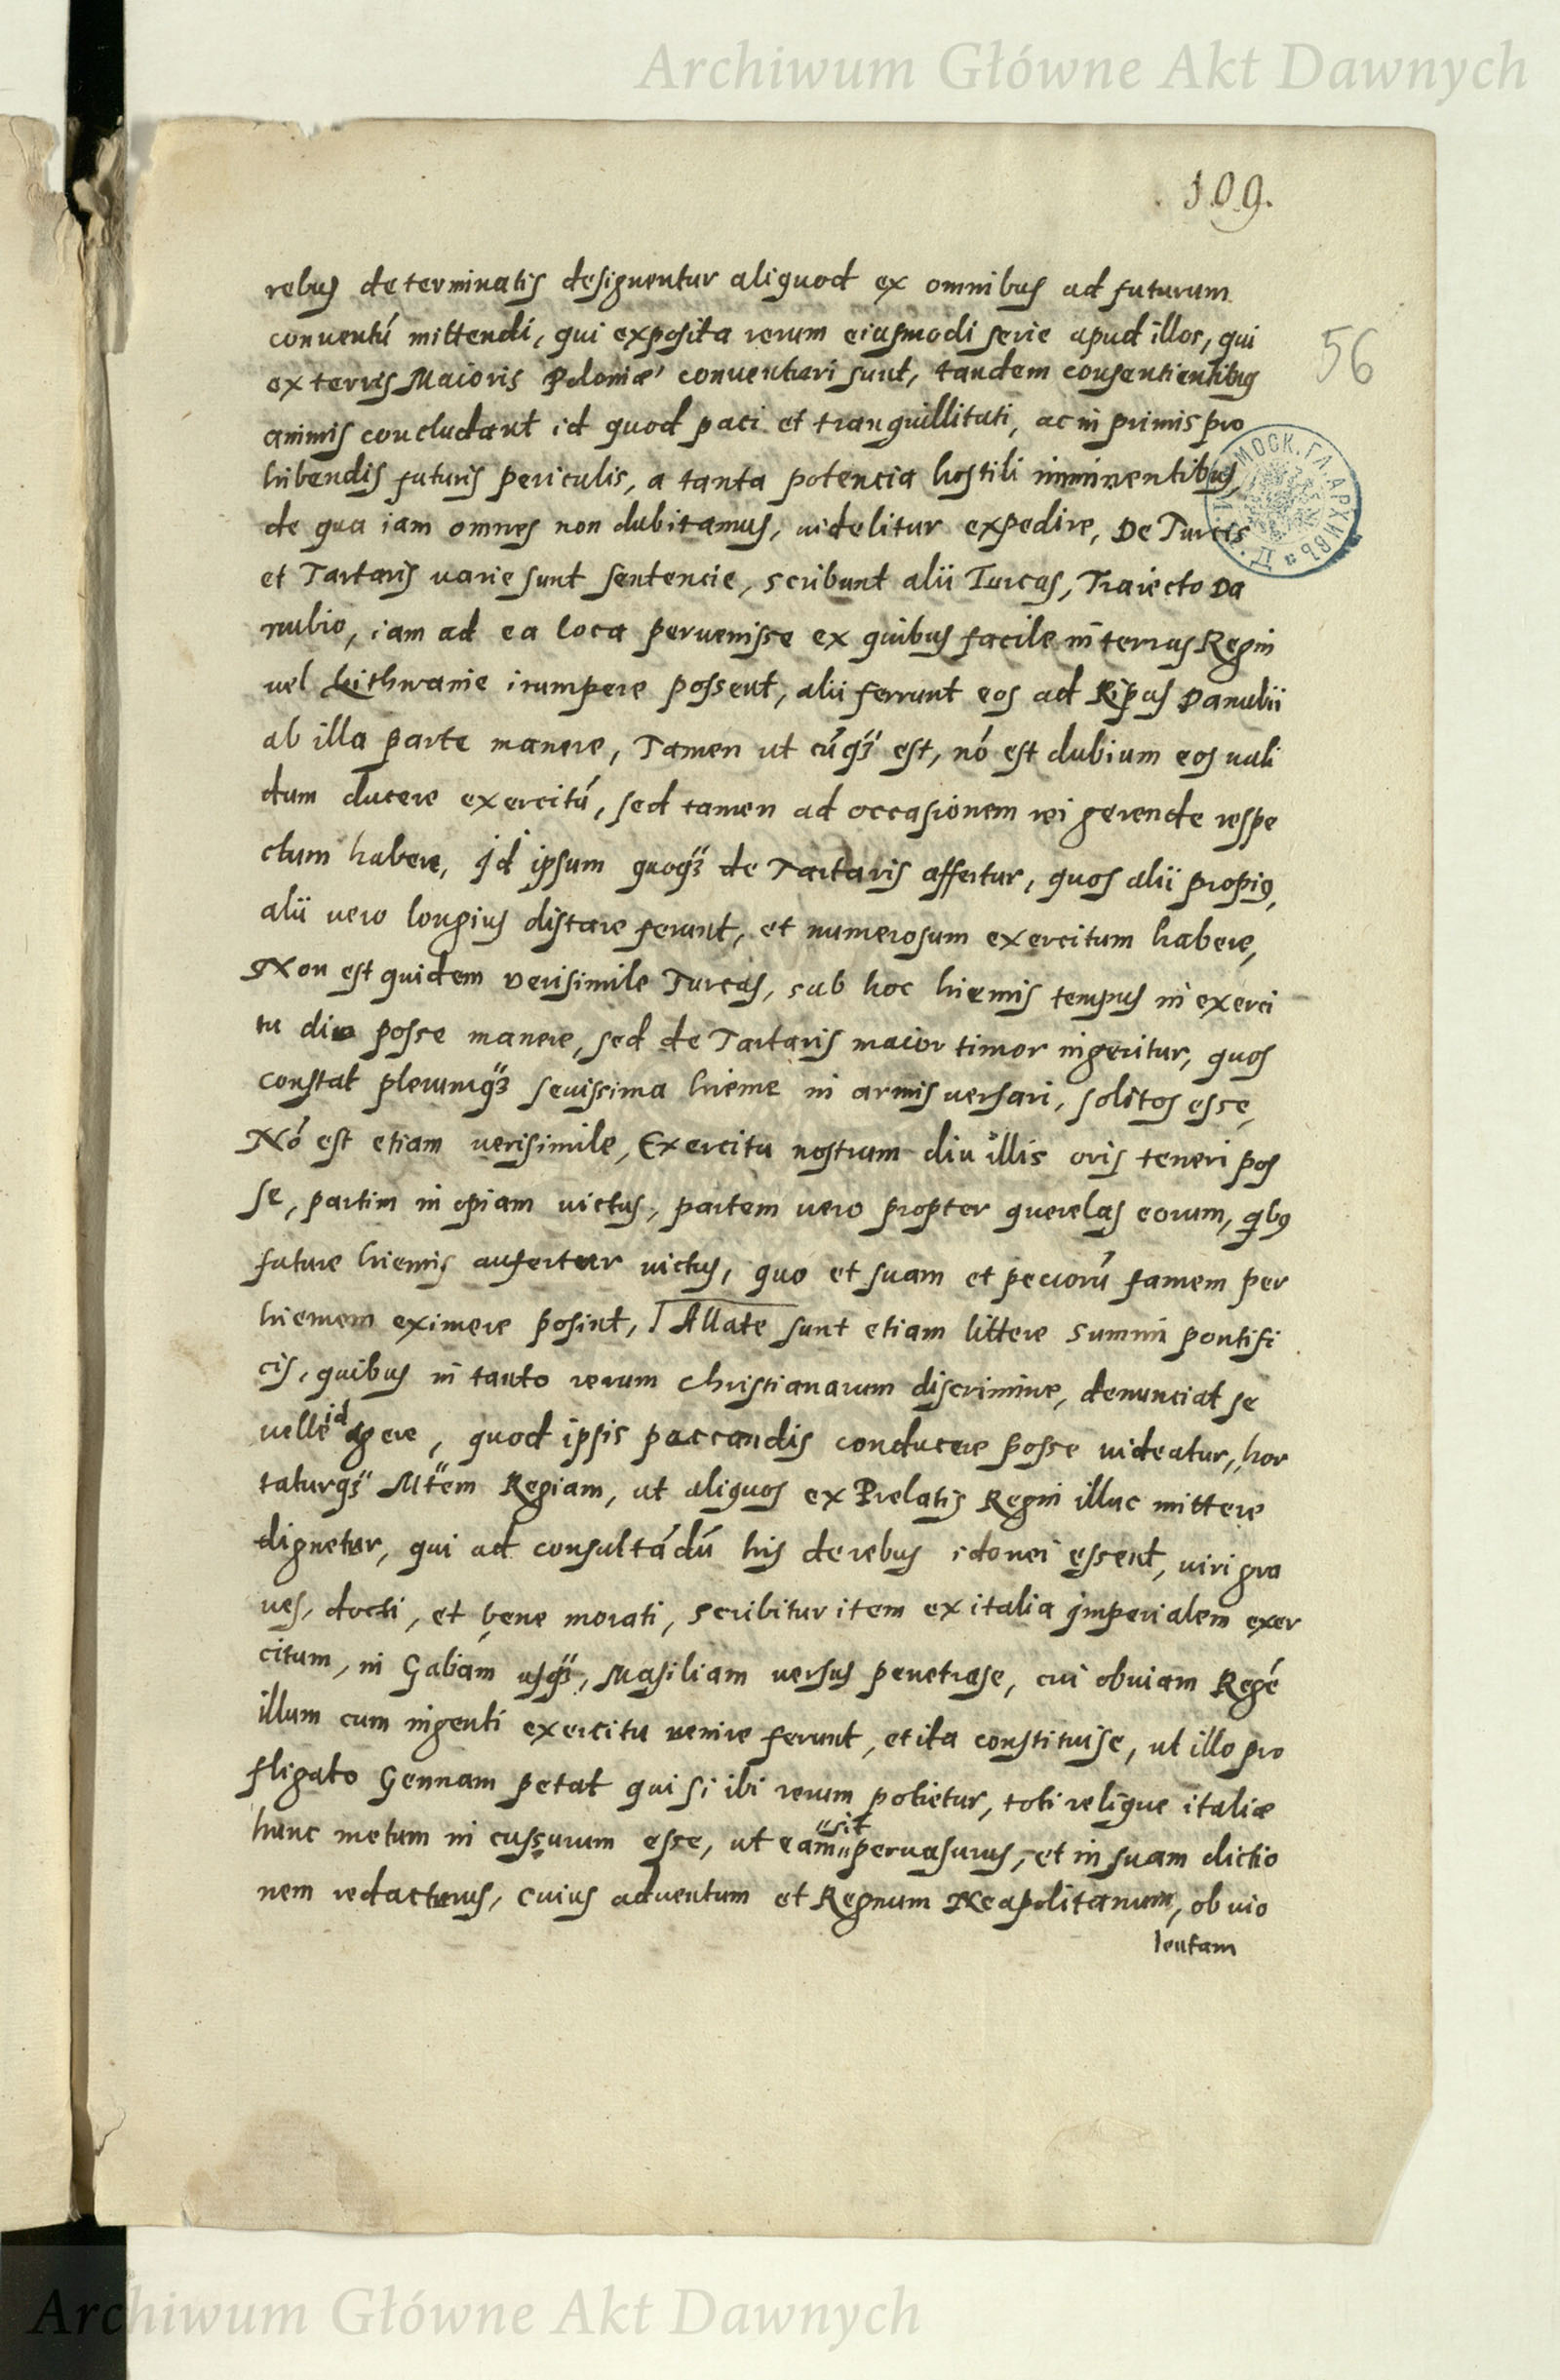 Archiwum Główne Akt Dawnych
109.
56
rebus determinatis designentur aliquod ex omnibus ad futurum
conventú mittendi, qui exposita rerum eiusmodi serie apud illos, qui
ex terris Maioris Poloniæ conventuri sunt, tandem consentientibus
animis concludant id quod paci et tranquillitati, ac in primis pro
hibendis futuris periculis, a tanta potencia hostili imminentibus,
de qua iam omnes non dubitamus, videlitur expedire, De Turcis
et Tartaris varie sunt sentencie, scribunt alii Turcas, Traiecto Da
nubio, iam ad ea loca pervenisse ex quibus facile in terras Regni
vel Lithwanie irumpere possent, alii ferrunt eos ad Ripas Danubii
ab illa parte manere, Tamen ut cúqȝ est, nó est dubium eos vali
dum ducere exercitú, sed tamen ad occasionem rei gerende respe
ctum habere, Id ipsum quoqȝ de Tartaris affertur, quos alii propiꝰ,
alii vero longius distare ferunt, et numerosum exercitum habere,
Non est quidem verisimile Turcas, sub hoc hiemis tempus in exerci
tu diu posse manere, sed de Tartaris maior timor ingeritur, quos
constat plerumqȝ sevissima hieme in armis versari, solitos esse,
Nó est etiam verisimile, Exercitu nostrum diu illis oris teneri pos
se, partim in opiam victus, partem vero propter querelas eorum, qibꝰ
future hiemis aufertur victus, quo et suam et peciorú famem per
hiemem eximere posint, Allate sunt etiam littere summi pontifi
cis, quibus in tanto rerum christianarum discrimine, denunciat se
velle id agere, quod ipsis paccandis conducere posse videatur, hor
taturqȝ Mtem Regiam, ut aliquos ex Prelatis Regni illuc mittere
dignetur, qui ad consultádú his de rebus idonei essent, viri gra
ves, docti, et bene morati, scribitur item ex italia imperialem exer
citum, in Gabiam usqȝ, Masiliam versus penetrase, cui obviam Regé
illum cum ingenti exercitu venire ferunt, et ita constituise, ut illo pro
fligato Gennam petat qui si ibi rerum potietur, toti reliqve italiæ
hunc metum in cussurum esse, ut eam sit pervasurus, et in suam dictio
nem redacturus, cuius adventum et Regnum Neapolitanum, ob vio
lentam
Archiwum Główne Akt Dawnych